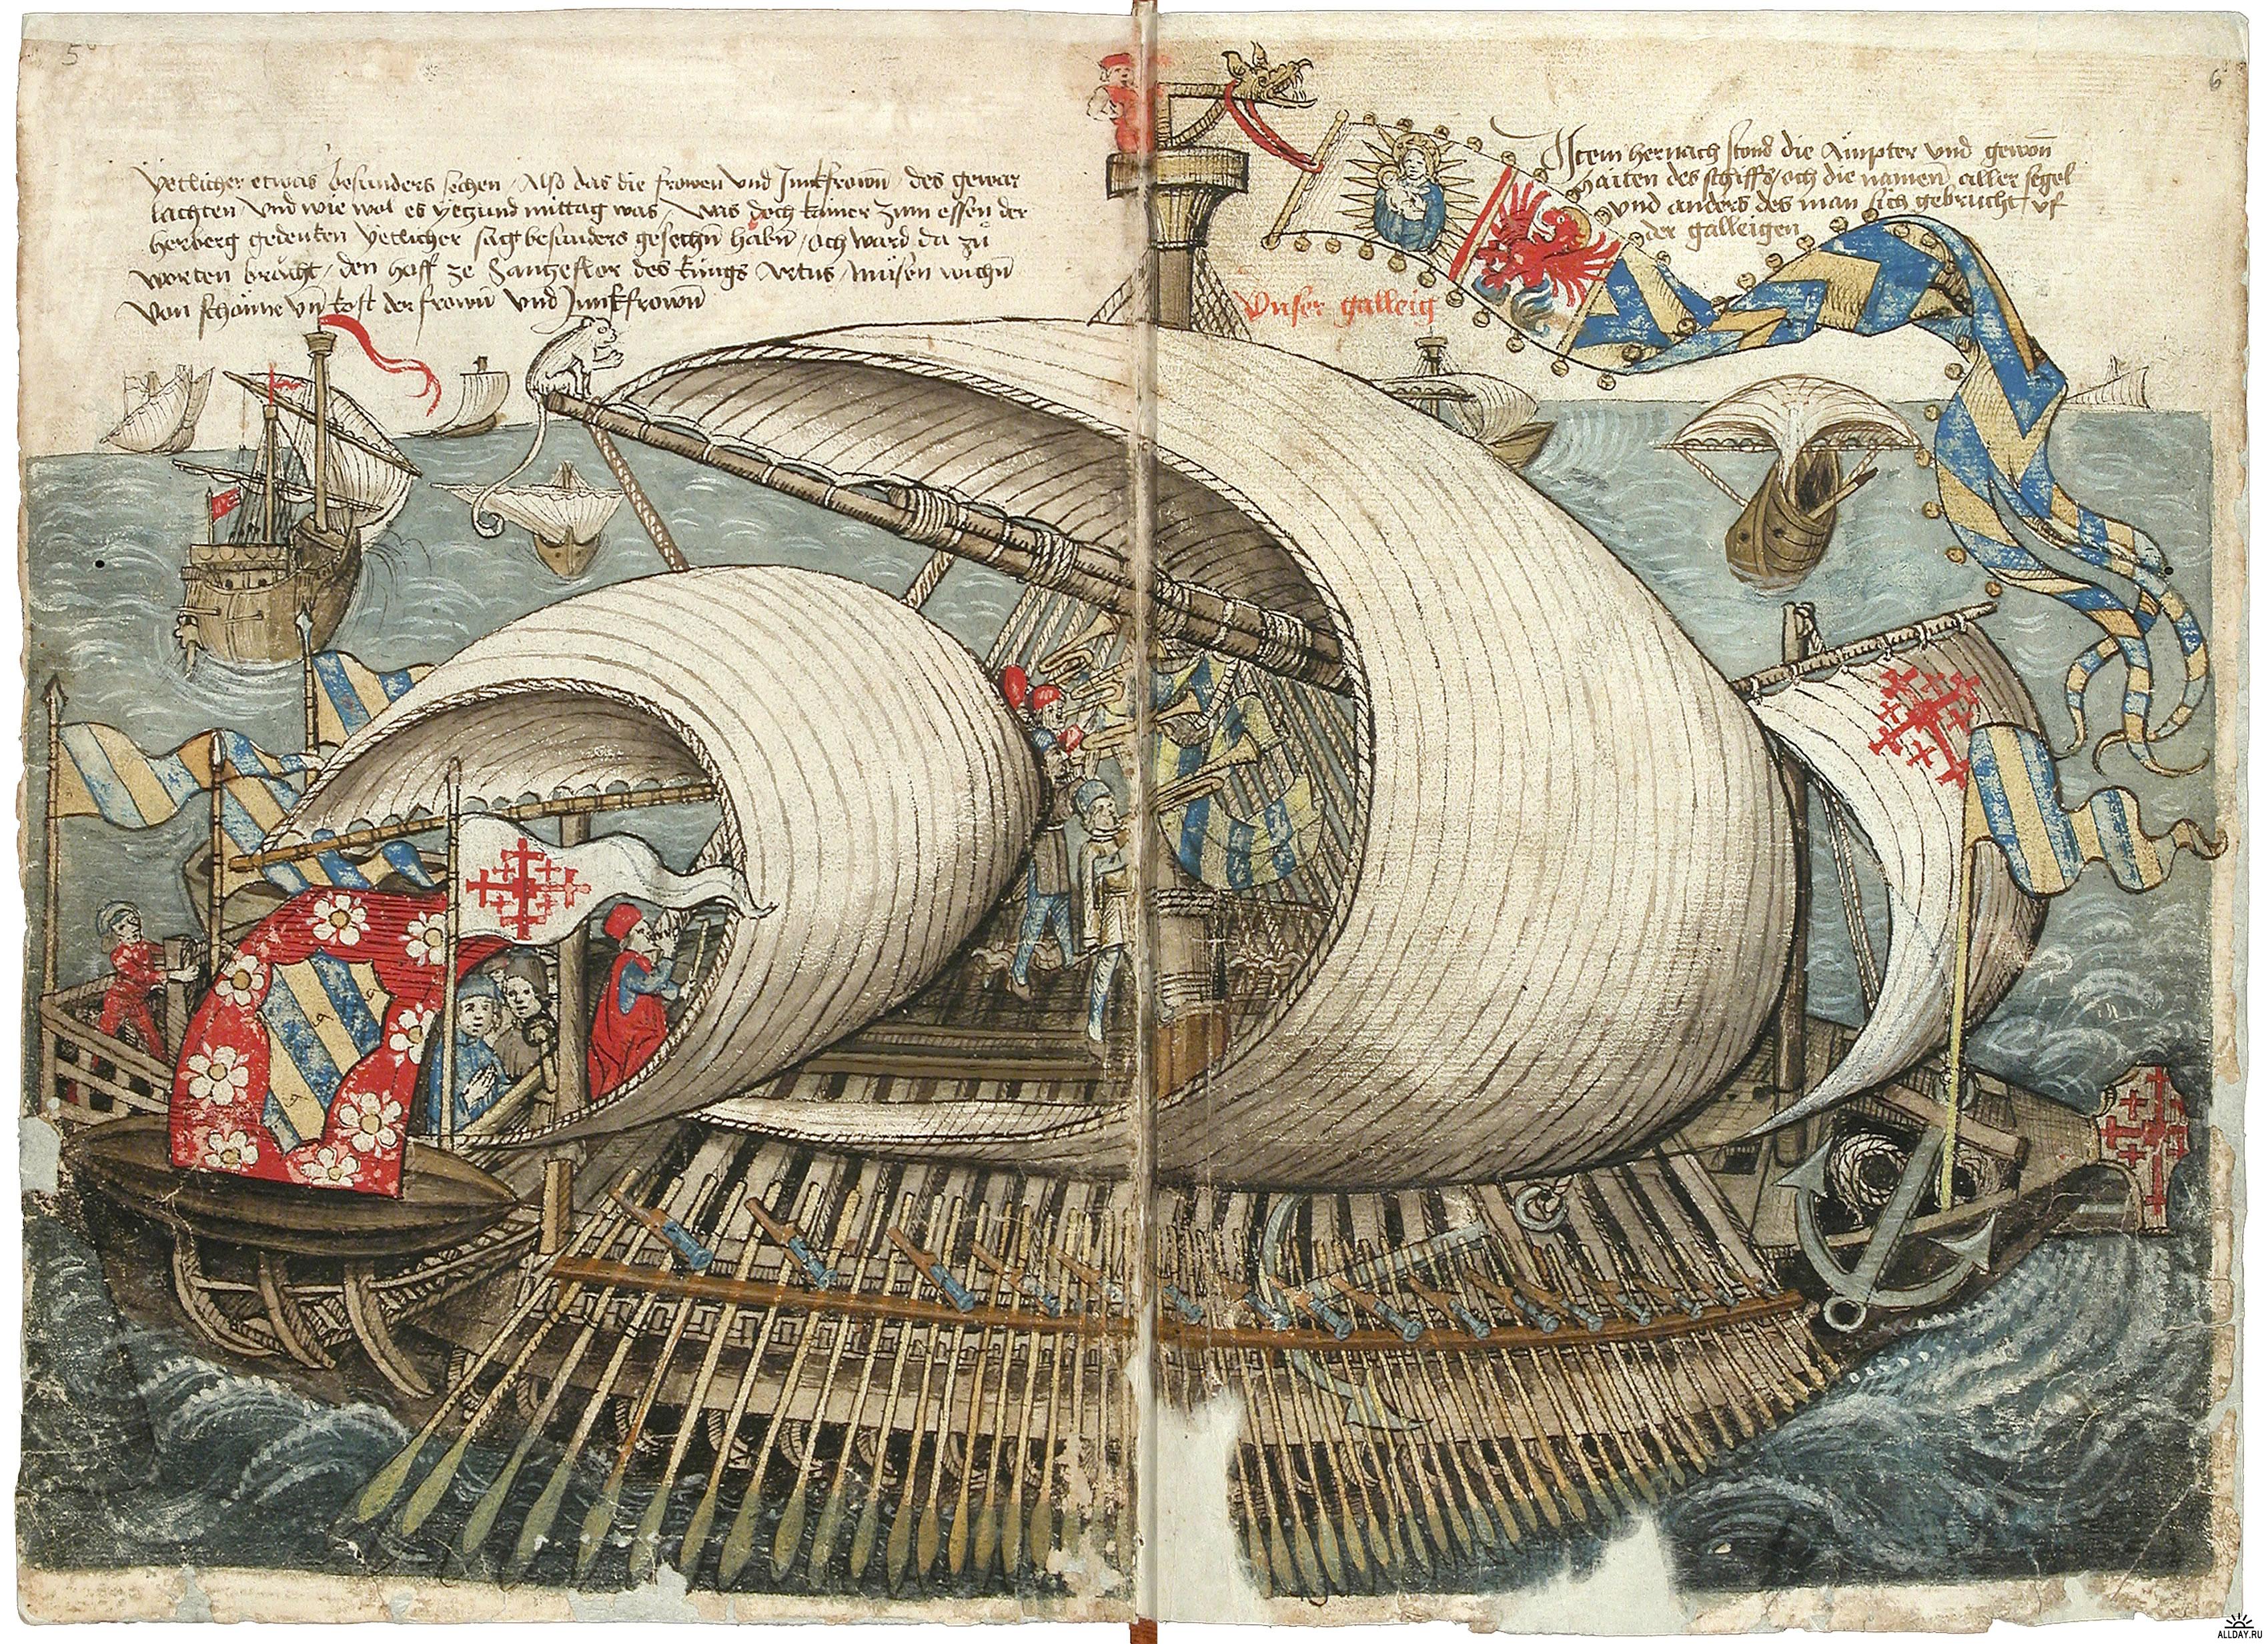 5
Yetlicher etwas besunders sechen, Also das die frowen und Junkfrown, des gewar
lachten, und wie wol es yetzund mittag was, was doch kainer zum essen der
herberg gedenken yetlicher sagt besunders gesechn habn, och ward da zu
worten bracht, den hoff ze des kungs Artus, musen wichn
von schonne un kost der frown und Junkfrown
6
Item hernach stond die Ämpter und gewon
haiten des schiffs och die namen aller segel
und anders des man sich gebrucht uf
der galleigen
Unser galleig
ALLDAY.RU